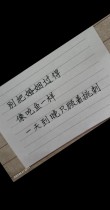 别把婚姻过得
像吃鱼一样
一天到晚只顾着挑刺